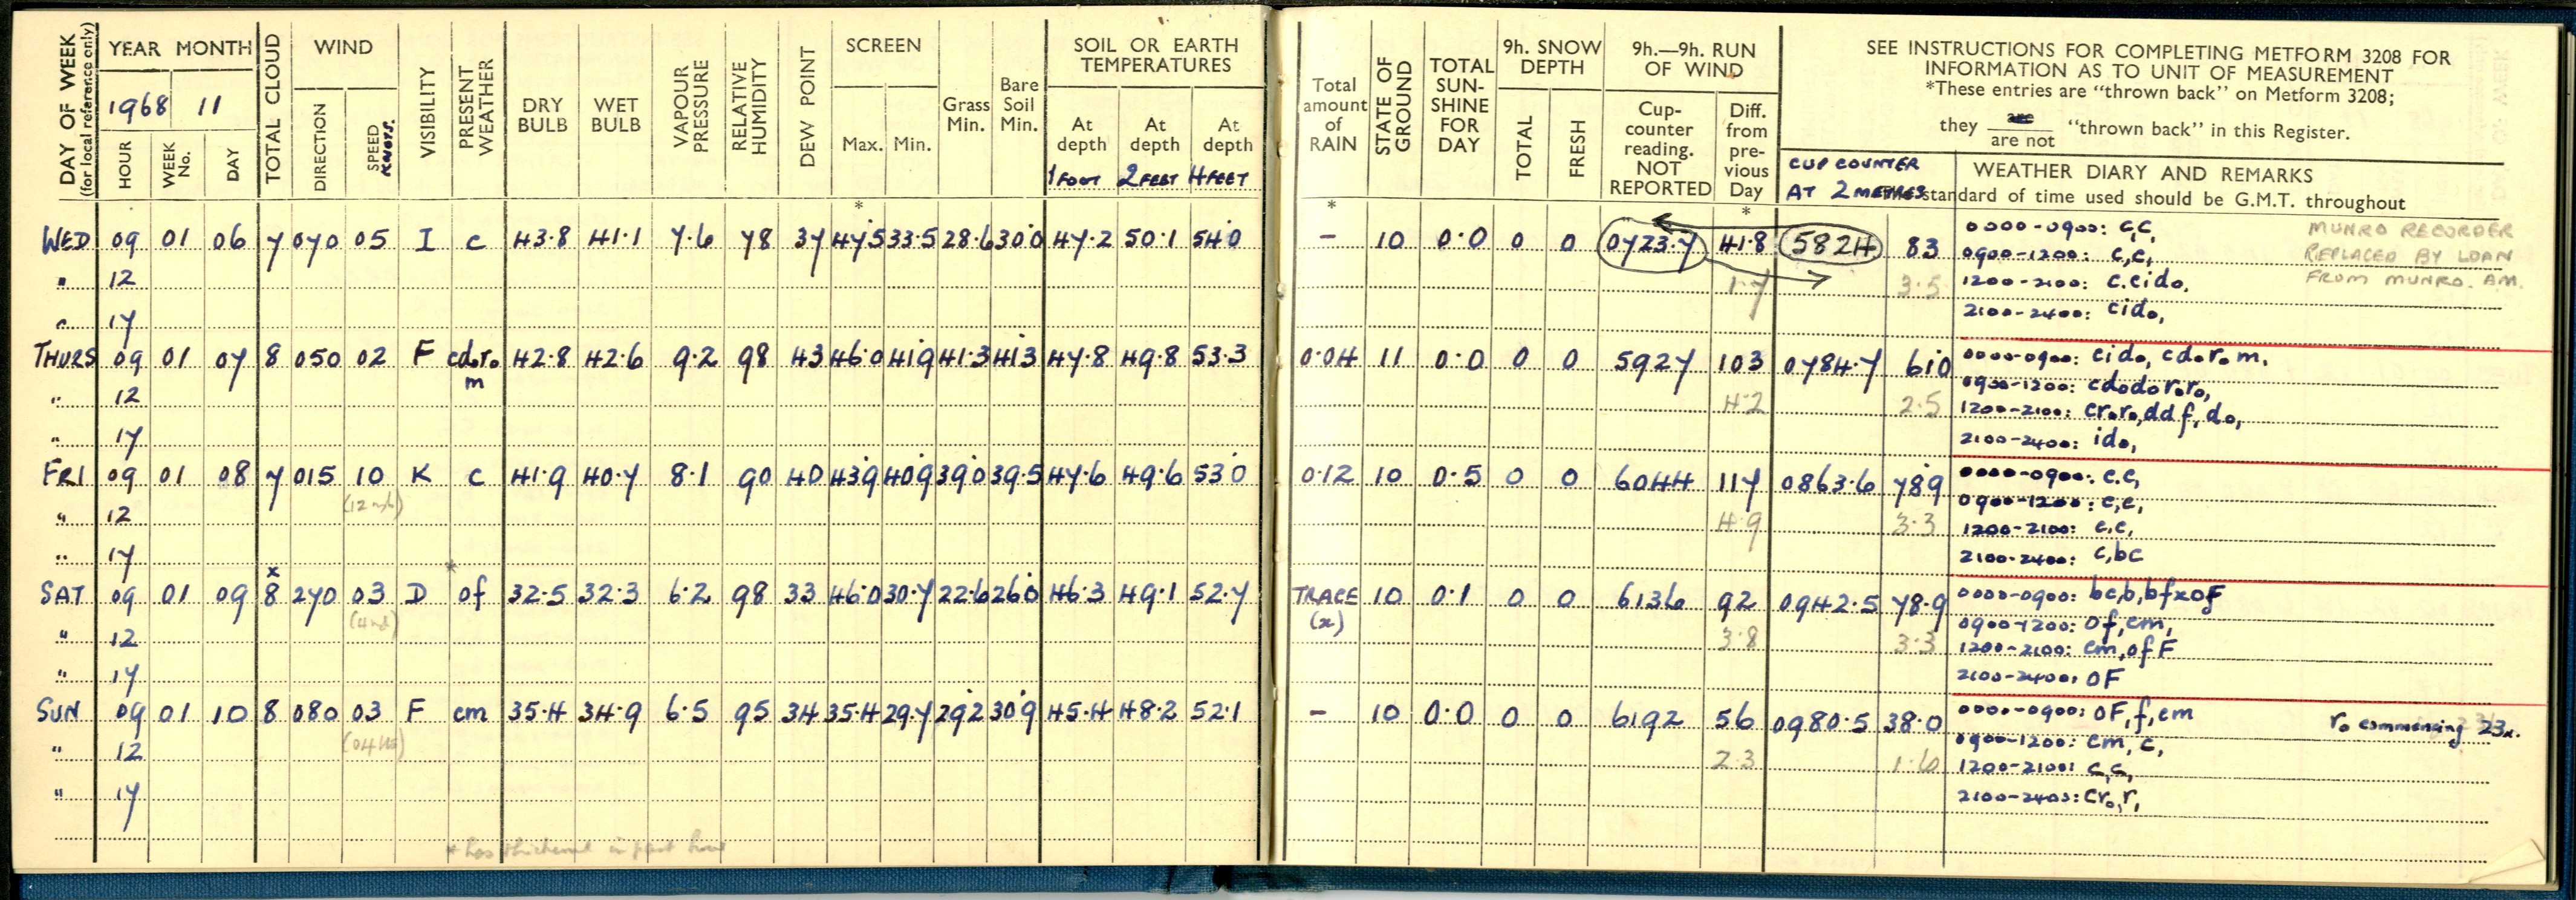 DAY OF WEEK
(for local reference only)
YEAR MONTH
1968 11
HOUR WEEK No. DAY
TOTAL CLOUD
WIND
DIRECTION SPEED KNOTS.
VISIBILITY
PRESENT WEATHER
DRY BULB
WET BULB
VAPOUR PRESSURE
RELATIVE HUMIDITY
DEW POINT
SCREEN
Max. Min.
Grass Min.
Bare Soil Min.
SOIL OR EARTH TEMPERATURES
At depth 1 FOOT
At depth 2 FEET
At depth 4 FEET
Total amount of RAIN
STATE OF GROUND
TOTAL SUN-SHINE FOR DAY
9h. SNOW DEPTH
TOTAL FRESH
9h.—9h. RUN OF WIND
Cup-counter reading. NOT REPORTED
Diff. from pre-vious Day
SEE INSTRUCTIONS FOR COMPLETING METFORM 3208 FOR
INFORMATION AS TO UNIT OF MEASUREMENT
*These entries are "thrown back" on Metform 3208;
they are / are not "thrown back" in this Register.
CUP COUNTER
AT 2 METRES
WEATHER DIARY AND REMARKS
standard of time used should be G.M.T. throughout
* * *
WED 09 01 06 7 070 05 I c 43.8 41.1 7.6 78 37 47.5 33.5 28.6 30.0 47.2 50.1 54.0 – 10 0.0 0 0 0723.7 41.8 5824 83 0000-0900: c,c,
MUNRO RECORDER
REPLACED BY LOAN
FROM MUNRO. AM.
0900-1200: c,c,
" 12 1.7 3.5 1200-2100: c.cido,
" 17 2100-2400: cido,
THURS 09 01 07 8 050 02 F cdoro m 42.8 42.6 9.2 98 43 46.0 41.9 41.3 41.3 47.8 49.8 53.3 0.04 11 0.0 0 0 5927 103 0784.7 61.0 0000-0900: cido, cdorom.
0900-1200: cdodororo,
" 12 4.2 2.5 1200-2100: croro,ddf,do,
" 17 2100-2400: ido,
FRI 09 01 08 7 015 10 K c 41.9 40.7 8.1 90 40 43.9 40.9 39.0 39.5 47.6 49.6 53.0 0.12 10 0.5 0 0 6044 117 0863.6 78.9 0000-0900: c.c,
0900-1200: c,c,
" 12 4.9 3.3 1200-2100: c,c,
" 17 2100-2400: c,bc
SAT 09 01 09 x 8 270 03 D * of 32.5 32.3 6.2 98 33 46.0 30.7 22.6 26.0 46.3 49.1 52.7 TRACE (x) 10 0.1 0 0 6136 92 0942.5 78.9 0000-0900: bc,b,bfxoF
0900-1200: Of,cm,
" 12 3.8 3.3 1200-2100: cm,ofF
" 17 2100-2400: OF
SUN 09 01 10 8 080 03 F cm 35.4 34.9 6.5 95 34 35.4 29.7 29.2 30.9 45.4 48.2 52.1 – 10 0.0 0 0 6192 56 0980.5 38.0 0000-0900: OF,f,cm
ro commencing 23
0900-1200: cm, c,
" 12 2.3 1.6 1200-2100: c,c,
" 17 2100-2400: cro,r,
* has thickened in past hour